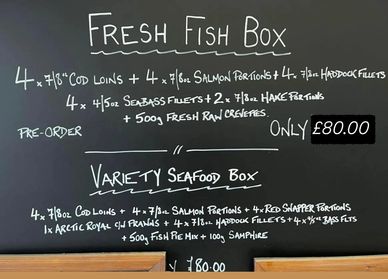 FRESH FISH BOX
4 x 7/8oz COD LOINS + 4 x 7/8oz SALMON PORTIONS + 4 x 7/8oz HADDOCK FILLETS
4 x 4/5oz SEABASS FILLETS + 2 x 7/8oz HAKE PORTIONS
+ 500g FRESH RAW CREVETTES.
PRE-ORDER
ONLY £80.00
VARIETY SEAFOOD BOX
4 x 7/8oz COD LOINS + 4 x 7/8oz SALMON PORTIONS + 4x RED SNAPPER PORTIONS
1x ARCTIC ROYAL C/W PRAWNS + 4 x 7/8oz HADDOCK FILLETS + 4 x 4/5oz BASS FLTS
+ 500g FISH PIE MIX + 100g SAMPHIRE
Y £80.00